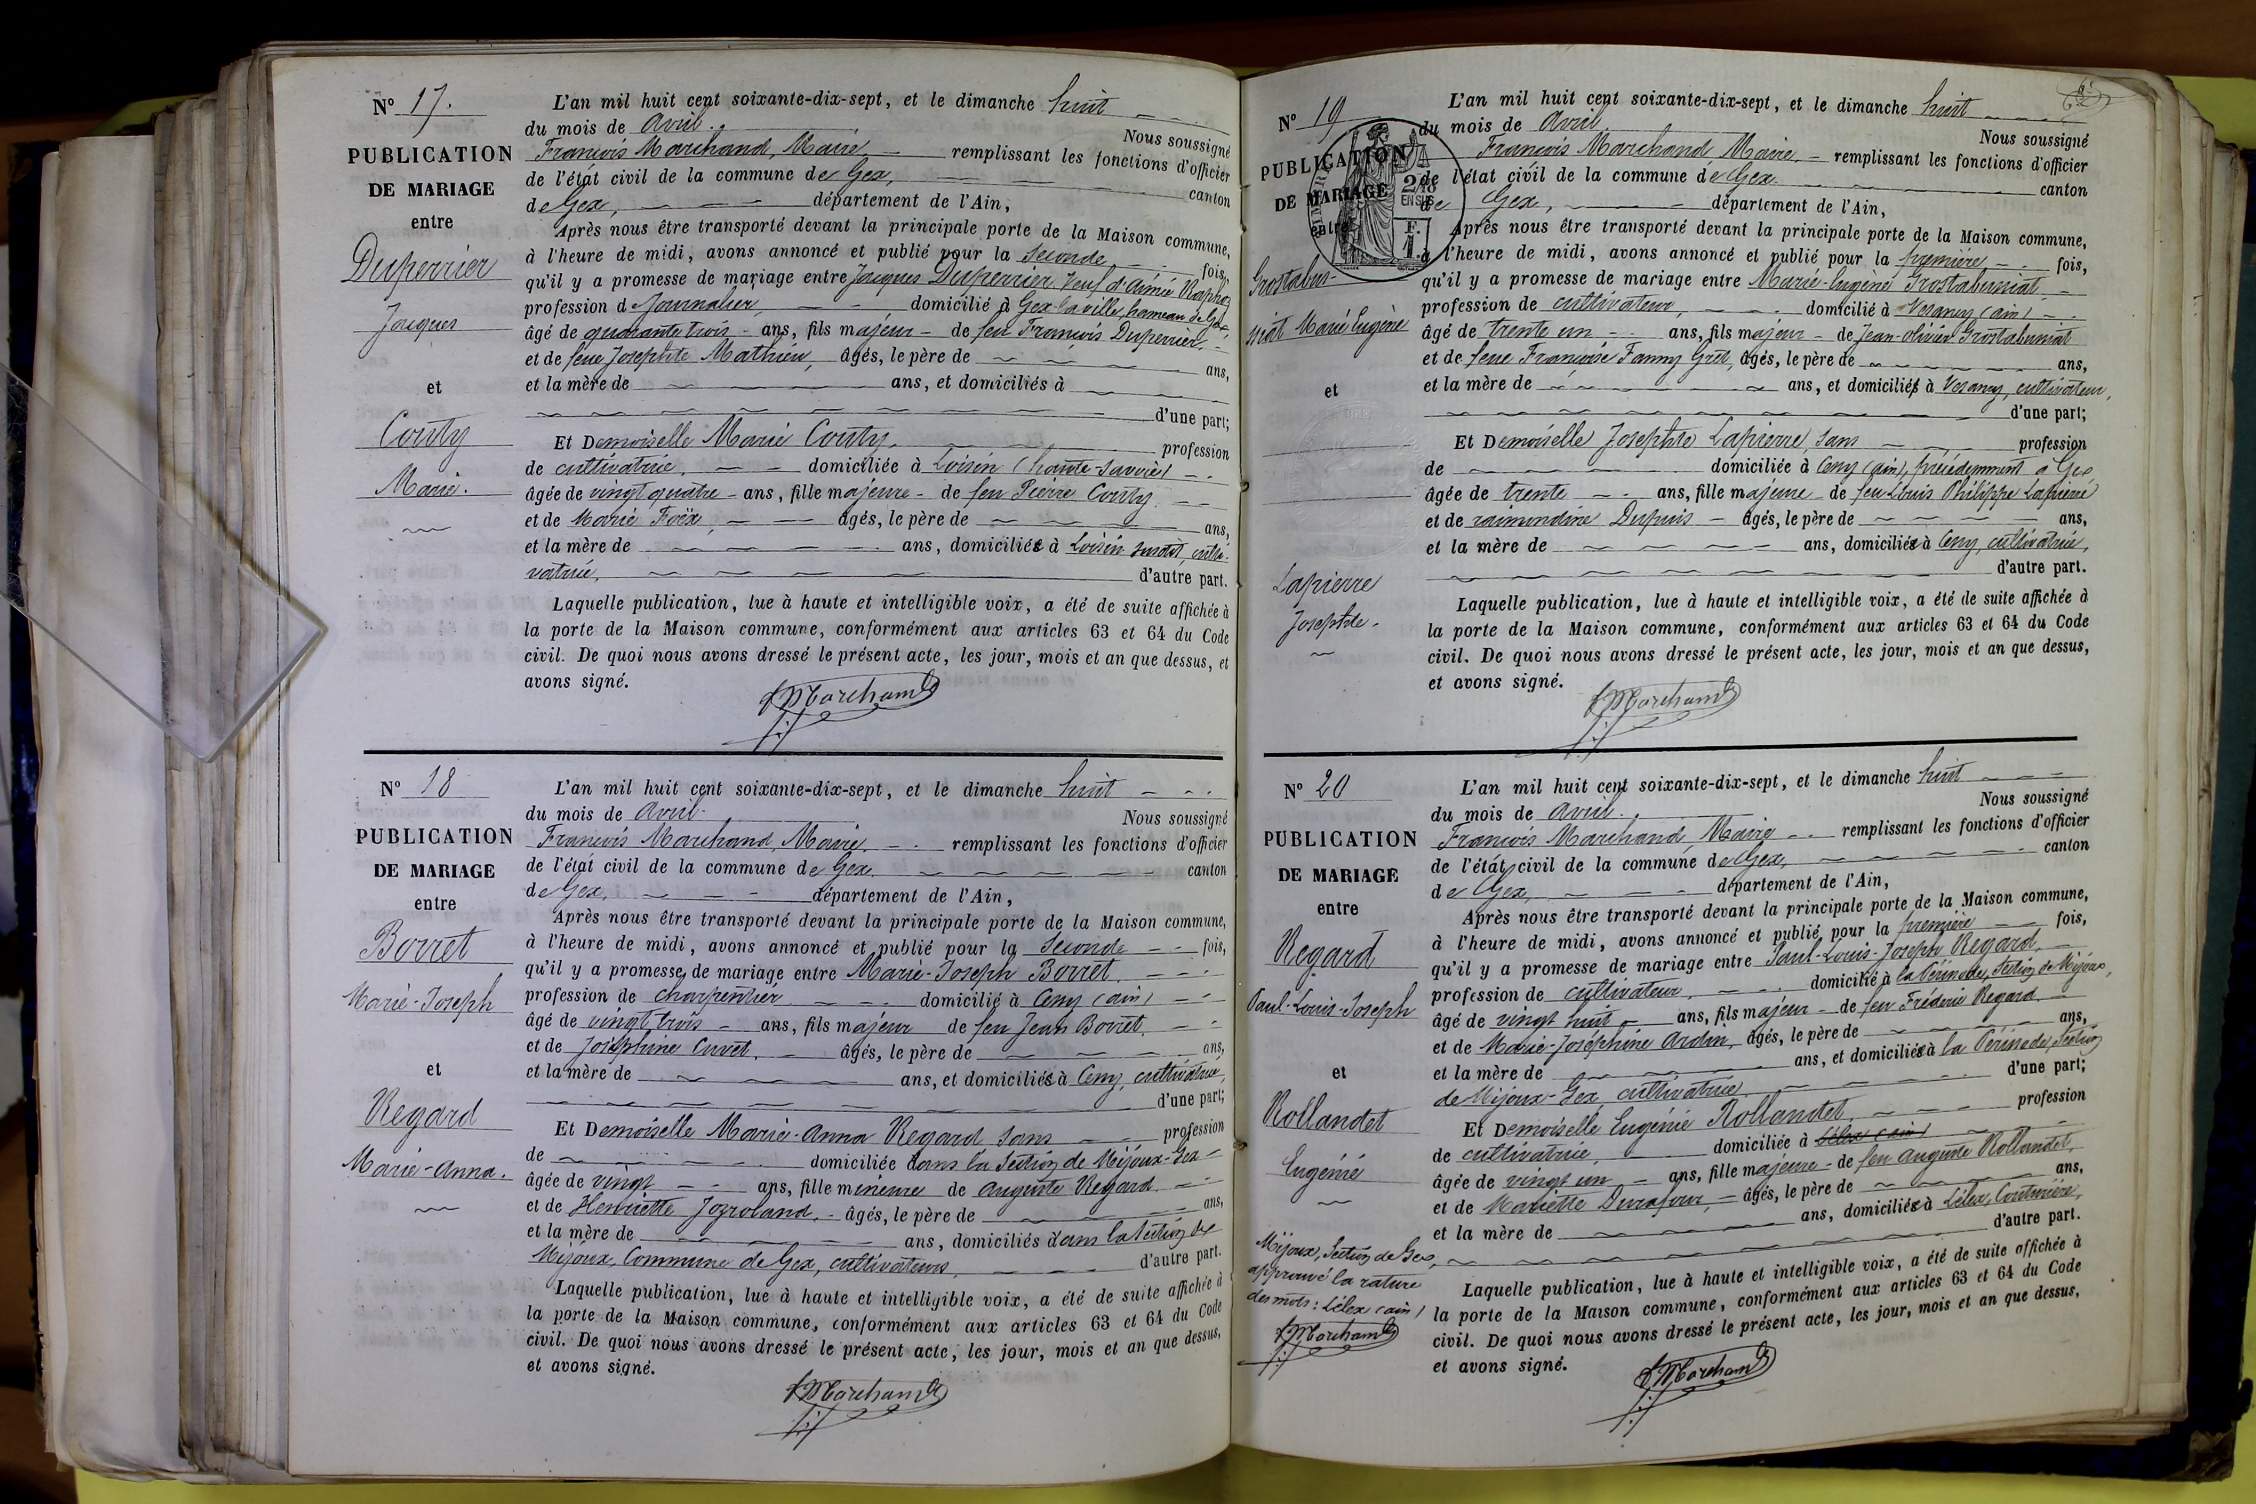 N° 17.
PUBLICATION
DE MARIAGE
entre
Duperrier
Jacques
et
Couty
Marie.
L'an mil huit cent soixante-dix-sept, et le dimanche huit
du mois de avril. Nous soussigné
François Marchand, Maire, remplissant les fonctions d'officier
de l'état civil de la commune de Gex, canton
de Gex, département de l'Ain,
Après nous être transporté devant la principale porte de la Maison commune,
à l'heure de midi, avons annoncé et publié pour la seconde fois,
qu'il y a promesse de mariage entre Jacques Duperrier veuf d'aimée
profession de Journalier, domicilié à Gex la ville, hameau de Gex
âgé de quarante trois ans, fils majeur de feu François Duperrier,
et de feue Josephte Mathieu, âgés, le père de ans,
et la mère de ans, et domiciliés à
d'une part;
Et Demoiselle Marie Couty. profession
de cultivatrice, domiciliée à Loisin (haute Savoie)
âgée de vingt quatre ans, fille majeure de feu Pierre Couty.
et de Marie Foëx, âgés, le père de ans,
et la mère de ans, domiciliée à Loisin susdit, culti-
vatrice, d'autre part.
Laquelle publication, lue à haute et intelligible voix, a été de suite affichée à
la porte de la Maison commune, conformément aux articles 63 et 64 du Code
civil. De quoi nous avons dressé le présent acte, les jour, mois et an que dessus, et
avons signé.
f Marchand
N° 18
PUBLICATION
DE MARIAGE
entre
Borret
Marie-Joseph
et
Regard
Marie-Anna.
L'an mil huit cent soixante-dix-sept, et le dimanche huit
du mois de avril. Nous soussigné
François Marchand, Maire, remplissant les fonctions d'officier
de l'état civil de la commune de Gex, canton
de Gex, département de l'Ain,
Après nous être transporté devant la principale porte de la Maison commune,
à l'heure de midi, avons annoncé et publié pour la seconde fois,
qu'il y a promesse de mariage entre Marie-Joseph Borret,
profession de charpentier domicilié à Cessy (ain)
âgé de vingt trois ans, fils majeur de feu Jean Borret,
et de Joséphine Cuvet, âgés, le père de ans,
et la mère de ans, et domiciliée à Cessy, cultivatrice,
d'une part;
Et Demoiselle Marie-Anna Regard sans profession
de domiciliée dans la Section de Mijoux-Gex
âgée de vingt ans, fille mineure de auguste Regard.
et de Henriette Jozroland, âgés, le père de ans,
et la mère de ans, domiciliés dans la Section de
Mijoux, Commune de Gex, cultivateurs, d'autre part.
Laquelle publication, lue à haute et intelligible voix, a été de suite affichée à
la porte de la Maison commune, conformément aux articles 63 et 64 du Code
civil. De quoi nous avons dressé le présent acte, les jour, mois et an que dessus,
et avons signé.
f Marchand
N° 19
PUBLICATION
DE MARIAGE
entre
Grostabus-
siat Marie Eugène
et
Lapierre
Josephte.
L'an mil huit cent soixante-dix-sept, et le dimanche huit
du mois de avril Nous soussigné
François Marchand, Maire, remplissant les fonctions d'officier
de l'état civil de la commune de Gex. canton
de Gex, département de l'Ain,
Après nous être transporté devant la principale porte de la Maison commune,
à l'heure de midi, avons annoncé et publié pour la première fois,
qu'il y a promesse de mariage entre Marie-Eugène Grostabussiat,
profession de cultivateur, domicilié à Vesancy (ain)
âgé de trente un ans, fils majeur de Jean-olivier Grostabussiat
et de feue Françoise Fanny Gros, âgés, le père de ans,
et la mère de ans, et domicilié à Vesancy, cultivateur,
d'une part;
Et Demoiselle Josephte Lapierre, sans profession
de domiciliée à Cessy (ain), précédemment à Gex
âgée de trente ans, fille majeure de feu Louis Philippe Lapierre
et de raimondine Dupuis âgés, le père de ans,
et la mère de ans, domiciliée à Cessy, cultivatrice,
d'autre part.
Laquelle publication, lue à haute et intelligible voix, a été de suite affichée à
la porte de la Maison commune, conformément aux articles 63 et 64 du Code
civil. De quoi nous avons dressé le présent acte, les jour, mois et an que dessus,
et avons signé.
f Marchand
N° 20
PUBLICATION
DE MARIAGE
entre
Regard
Paul-Louis-Joseph
et
Rollandet
Eugénie
L'an mil huit cent soixante-dix-sept, et le dimanche huit
du mois de avril. Nous soussigné
François Marchand, Maire remplissant les fonctions d'officier
de l'état civil de la commune de Gex, canton
de Gex, département de l'Ain,
Après nous être transporté devant la principale porte de la Maison commune,
à l'heure de midi, avons annoncé et publié pour la première fois,
qu'il y a promesse de mariage entre Paul-Louis-Joseph Regard,
profession de cultivateur, domicilié à la Section de Mijoux,
âgé de vingt huit ans, fils majeur de feu Fréderic Regard,
et de Marie-Joséphine Ardin, âgés, le père de ans,
et la mère de ans, et domiciliée à la Section
de Mijoux-Gex cultivatrice. d'une part;
Et Demoiselle Eugénie Rollandet, profession
de cultivatrice, domiciliée à Lélex (ain)
âgée de vingt un ans, fille majeure de feu auguste Rollandet,
et de Mariette Durafour, âgés, le père de ans,
et la mère de ans, domiciliée à Lélex, Couturière,
d'autre part.
Mijoux, Section de Gex,
approuvé la rature
des mots: Lélex (ain)
f Marchand
Laquelle publication, lue à haute et intelligible voix, a été de suite affichée à
la porte de la Maison commune, conformément aux articles 63 et 64 du Code
civil. De quoi nous avons dressé le présent acte, les jour, mois et an que dessus,
et avons signé.
f Marchand